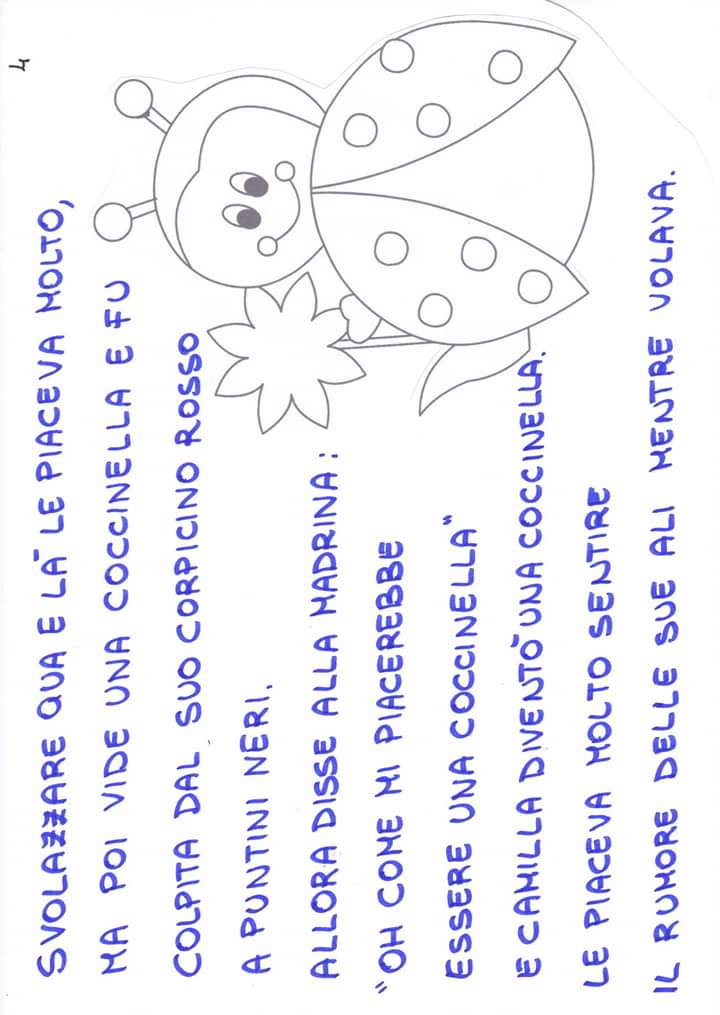 4
SVOLAZZARE QUA E LÀ LE PIACEVA MOLTO,
MA POI VIDE UNA COCCINELLA E FU
COLPITA DAL SUO CORPICINO ROSSO
A PUNTINI NERI.
ALLORA DISSE ALLA MADRINA:
"OH COME MI PIACEREBBE
ESSERE UNA COCCINELLA"
E CAMILLA DIVENTÒ UNA COCCINELLA.
LE PIACEVA MOLTO SENTIRE
IL RUMORE DELLE SUE ALI MENTRE VOLAVA.